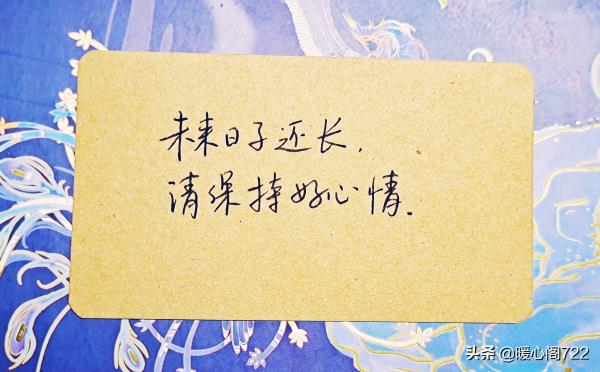 未来日子还长,
请保持好心情.
头条 @暖心阁722